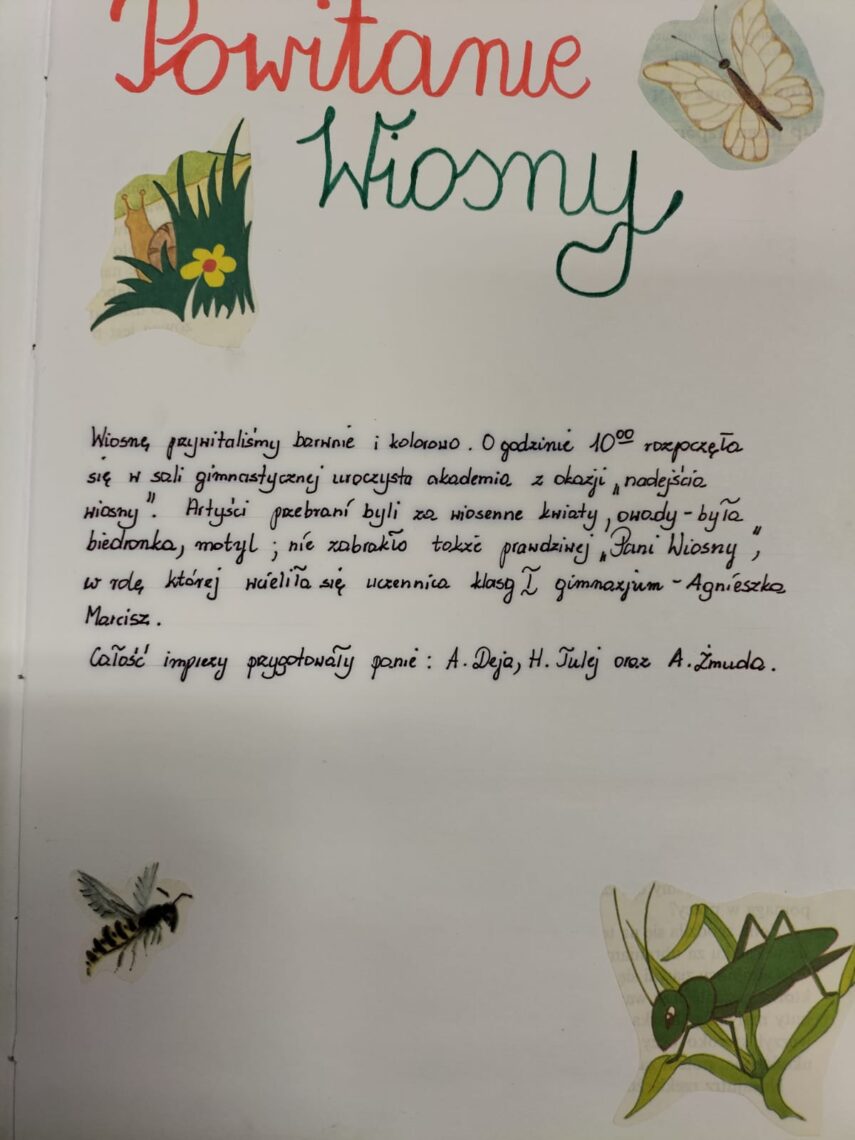 Powitanie
Wiosny
Wiosnę przywitaliśmy barwnie i kolorowo. O godzinie 10⁰⁰ rozpoczęła
się w sali gimnastycznej uroczysta akademia z okazji „nadejścia
wiosny". Artyści przebrani byli za wiosenne kwiaty, owady - była
biedronka, motyl ; nie zabrakło także prawdziwej „Pani Wiosny",
w rolę której wcieliła się uczennica klasy I gimnazjum - Agnieszka
Marcisz.
Całość imprezy przygotowały panie : A. Deja, H. Tulej oraz A. Żmuda.